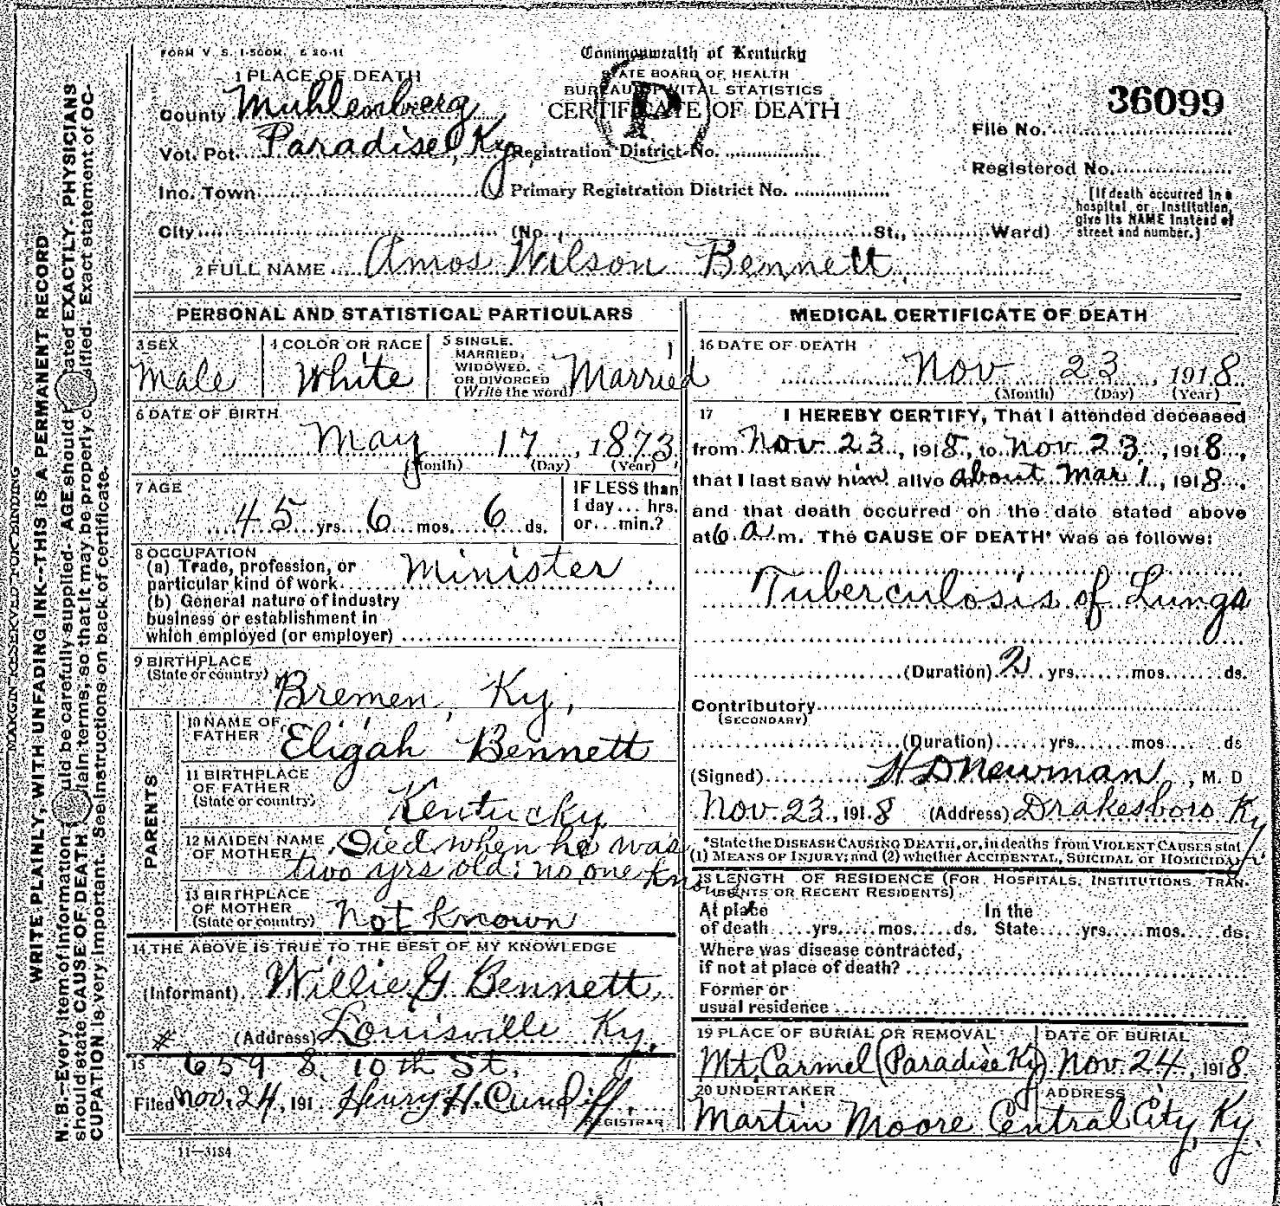 FORM V. S. 1-500M. 6 20-11
Commonwealth of Kentucky
STATE BOARD OF HEALTH
BUREAU OF VITAL STATISTICS
CERTIFICATE OF DEATH
P
36099
File No.
Registered No.
[If death occurred in a
hospital or institution,
give its NAME instead of
street and number.]
1 PLACE OF DEATH
County Muhlenberg
Vot. Pct. Paradise, Ky Registration District No.
Inc. Town Primary Registration District No.
City (No. St., Ward)
2 FULL NAME Amos Wilson Bennett
PERSONAL AND STATISTICAL PARTICULARS
3 SEX
Male
4 COLOR OR RACE
White
5 SINGLE,
MARRIED,
WIDOWED,
OR DIVORCED
(Write the word)
Married
6 DATE OF BIRTH
May 17, 1873
(Month) (Day) (Year)
7 AGE
45 yrs. 6 mos. 6 ds.
IF LESS than
1 day... hrs.
or... min.?
8 OCCUPATION
(a) Trade, profession, or
particular kind of work Minister
(b) General nature of industry
business or establishment in
which employed (or employer)
9 BIRTHPLACE
(State or country)
Bremen, Ky,
PARENTS
10 NAME OF
FATHER
Eligah Bennett
11 BIRTHPLACE
OF FATHER
(State or country)
Kentucky
12 MAIDEN NAME
OF MOTHER
Died when he was
two yrs old: no one knows
13 BIRTHPLACE
OF MOTHER
(State or country) Not Known
14 THE ABOVE IS TRUE TO THE BEST OF MY KNOWLEDGE
(Informant) Willie G Bennett,
# (Address) Louisville Ky.
659 S. 10th St.
15
Filed Nov. 24, 191 Henry H. Cundiff,
REGISTRAR
11—3184
MEDICAL CERTIFICATE OF DEATH
16 DATE OF DEATH
Nov 23, 1918
(Month) (Day) (Year)
17 I HEREBY CERTIFY, That I attended deceased
from Nov 23, 1918, to Nov 23, 1918,
that I last saw him alive on about Mar 1, 1918,
and that death occurred on the date stated above
at 6 a.m. The CAUSE OF DEATH* was as follows:
Tuberculosis of Lungs
(Duration) 2 yrs. mos. ds.
Contributory
(SECONDARY)
(Duration) yrs. mos. ds
(Signed) H D Newman, M. D
Nov. 23, 1918 (Address) Drakesboro Ky
*State the DISEASE CAUSING DEATH, or, in deaths from VIOLENT CAUSES stat
(1) MEANS OF INJURY; and (2) whether ACCIDENTAL, SUICIDAL or HOMICIDAL
18 LENGTH OF RESIDENCE (FOR HOSPITALS, INSTITUTIONS, TRAN-
SIENTS OR RECENT RESIDENTS)
At place In the
of death yrs. mos. ds. State yrs. mos. ds.
Where was disease contracted,
if not at place of death?
Former or
usual residence
19 PLACE OF BURIAL OR REMOVAL
Mt. Carmel (Paradise Ky)
DATE OF BURIAL
Nov. 24, 1918
20 UNDERTAKER
Martin Moore
ADDRESS
Central City, Ky.
MARGIN RESERVED FOR BINDING
WRITE PLAINLY, WITH UNFADING INK--THIS IS A PERMANENT RECORD
N. B.--Every item of information should be carefully supplied. AGE should be stated EXACTLY. PHYSICIANS
should state CAUSE OF DEATH in plain terms, so that it may be properly classified. Exact statement of OC-
CUPATION is very important. See instructions on back of certificate.